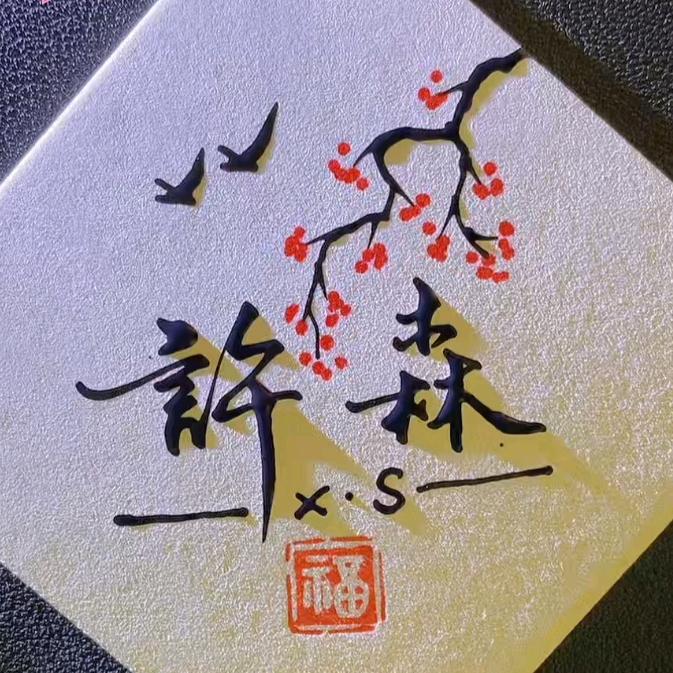 許森
x·S
福